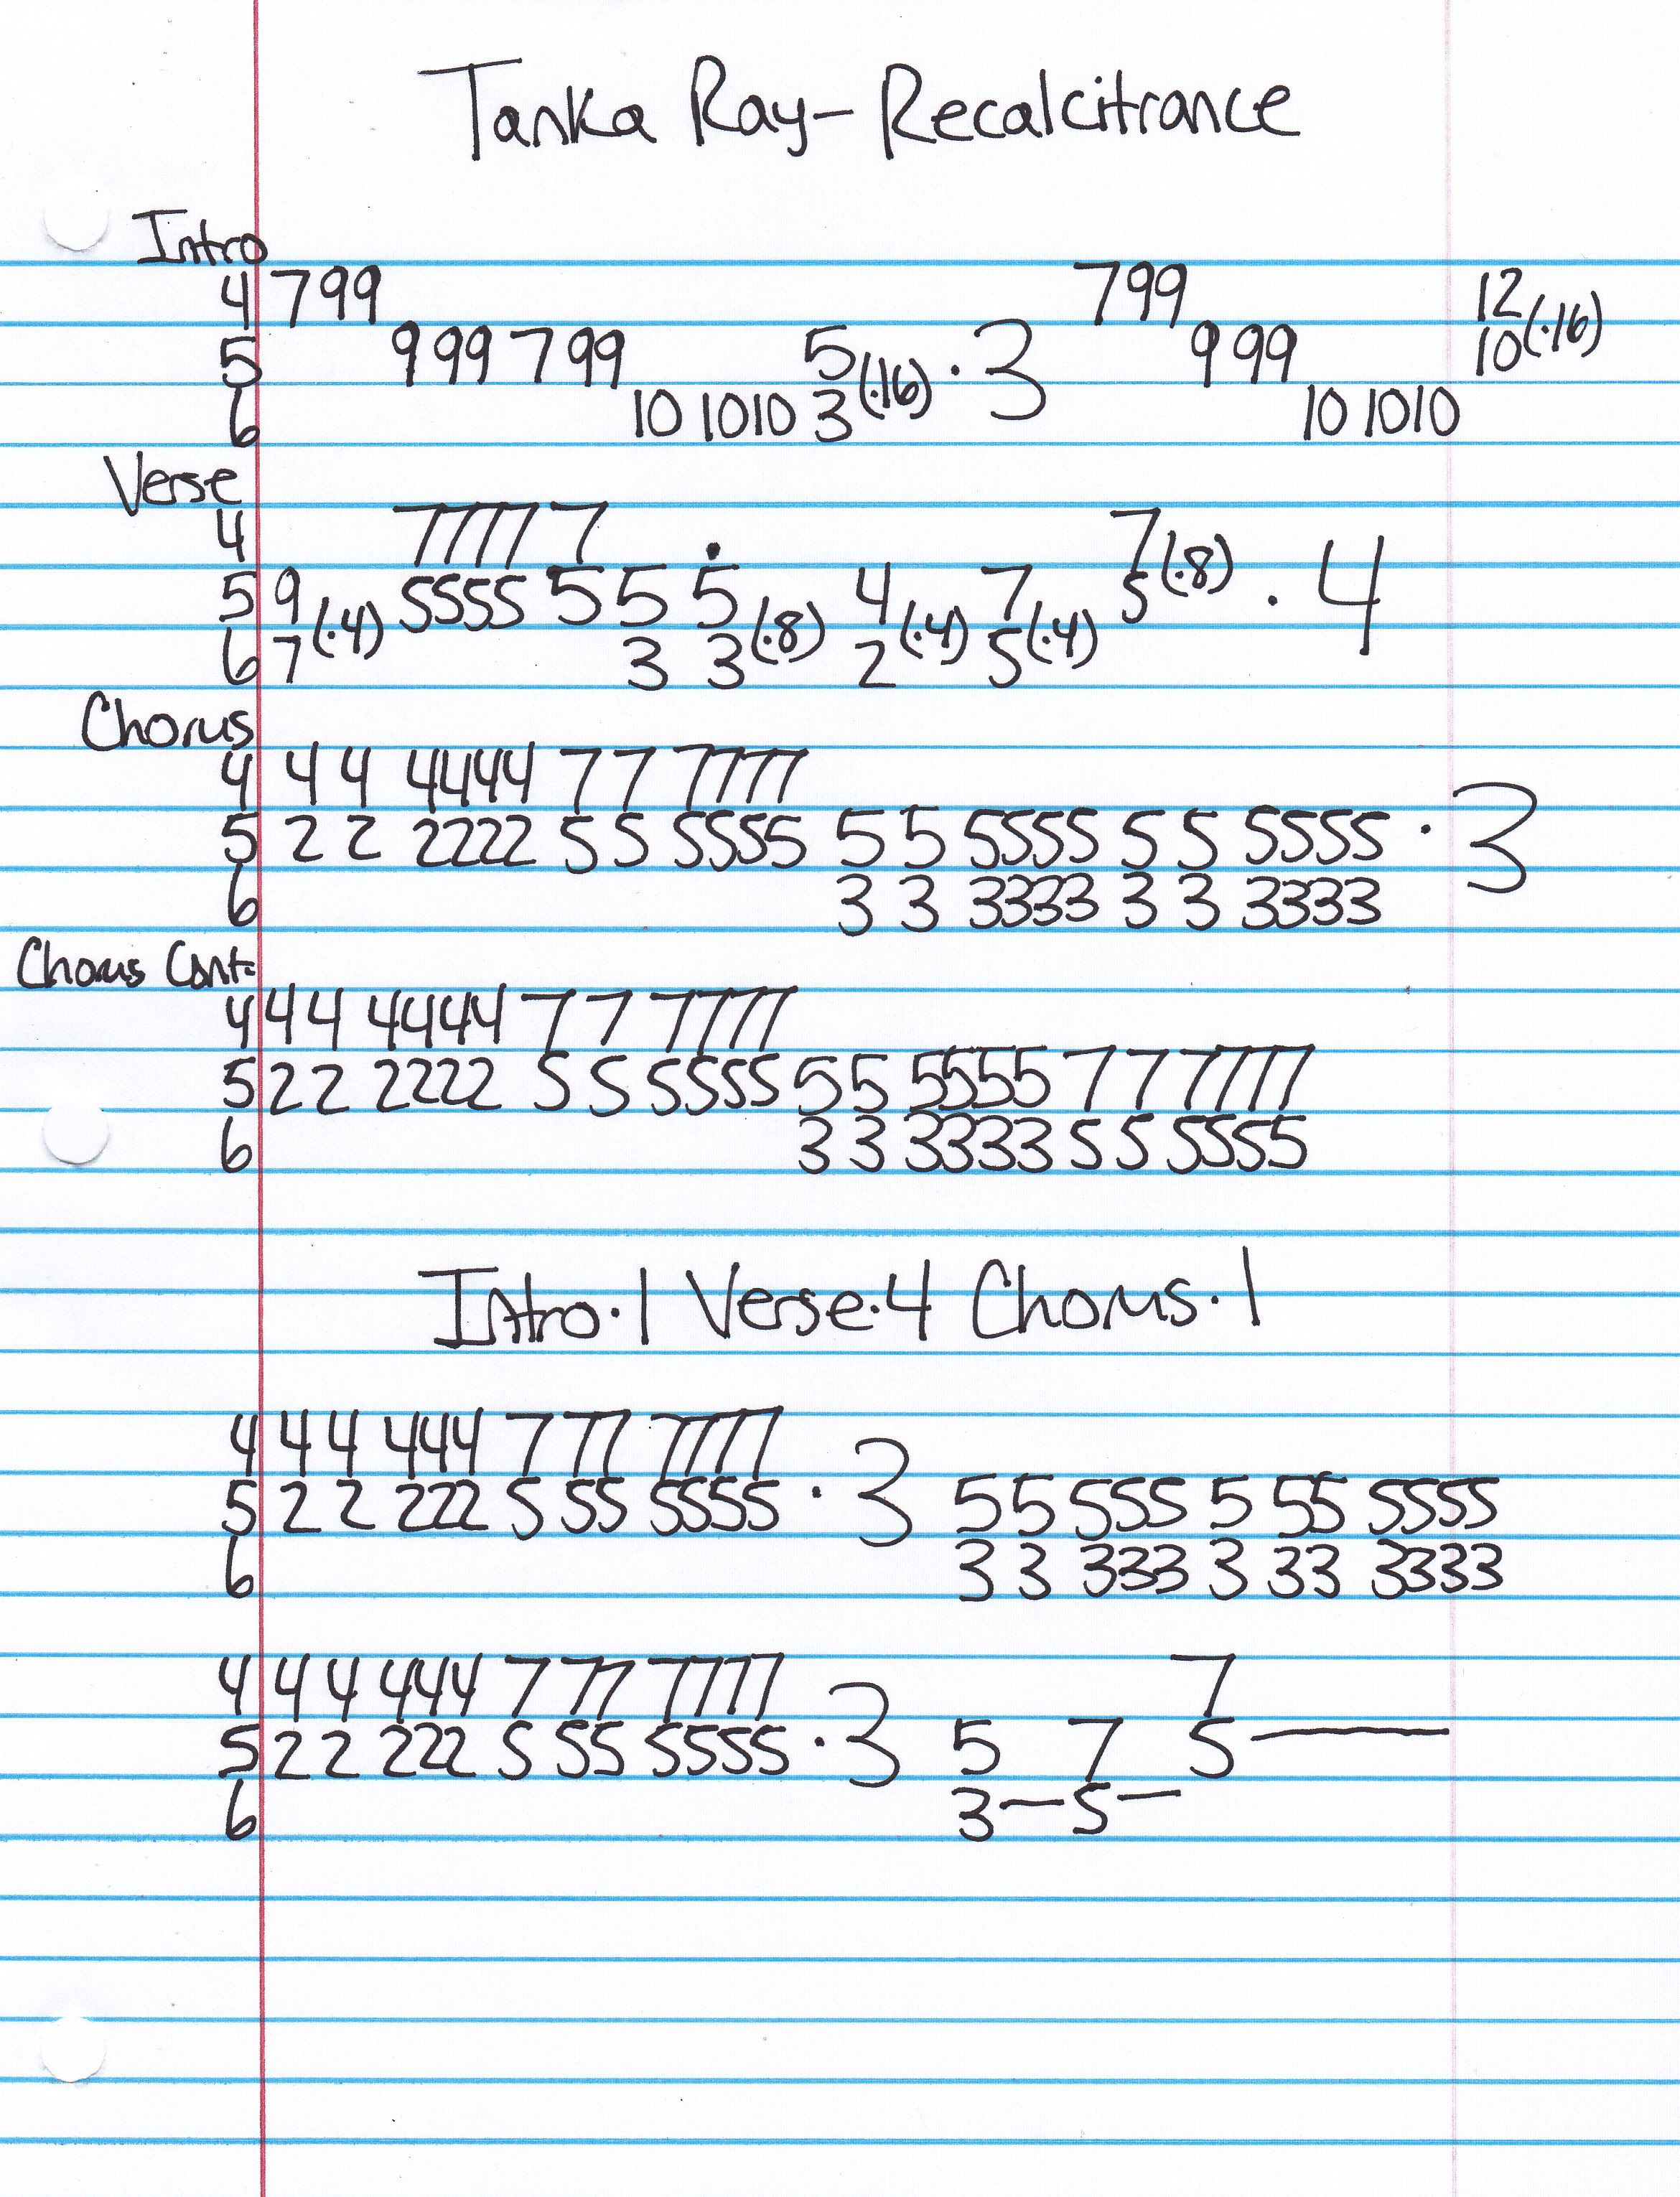 Tanka Ray- Recalcitrance
Intro
4 799 799 12
5 9 99 7 99 5 (·16) · 3 9 99 10 (·16)
6 10 1010 3 10 1010
Verse
4 7777 7 7 (·8) · 4
5 9 (·4) 5555 5 5 5 4 7 5
6 7 3 3 (·8) 2 (·4) 5 (·4)
Chorus
4 4 4 4444 7 7 7777
5 2 2 2222 5 5 5555 5 5 5555 5 5 5555 · 3
6 3 3 3333 3 3 3333
Chorus Cont.
4 4 4 4444 7 7 7777
5 2 2 2222 5 5 5555 5 5 5555 7 7 7777
6 3 3 3333 5 5 5555
Intro·1 Verse·4 Chorus·1
4 4 4 444 7 77 7777
5 2 2 222 5 55 5555 · 3 5 5 555 5 55 5555
6 3 3 333 3 33 3333
4 4 4 444 7 77 7777 7
5 2 2 222 5 55 5555 · 3 5 7 5 —
6 3 — 5 —